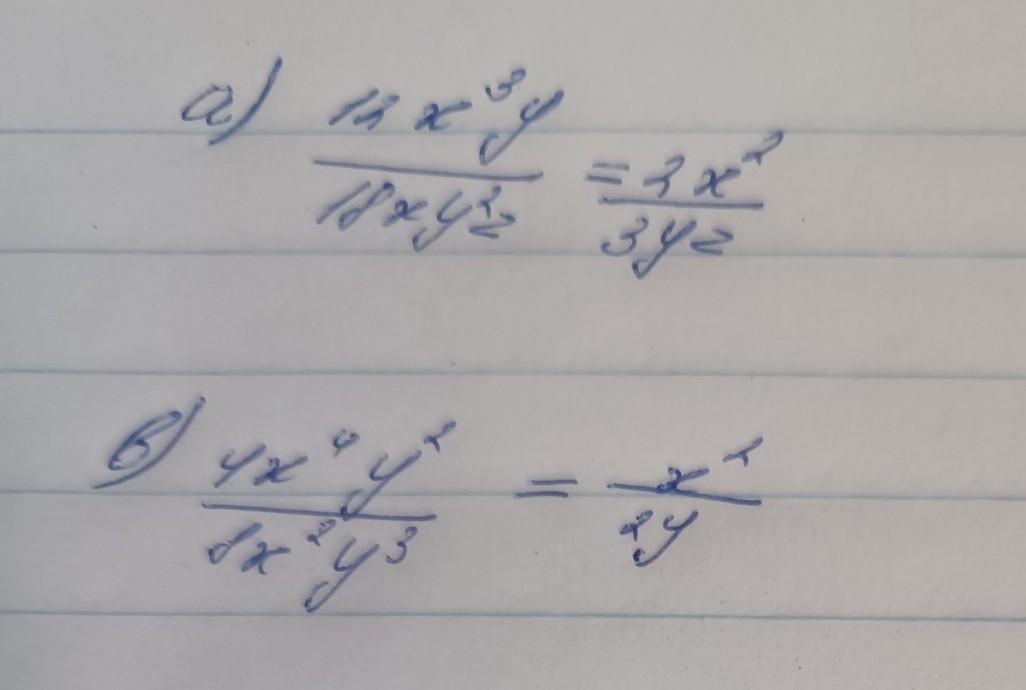 а) 12x³y / 18xy²z = 2x² / 3yz
в) 4x⁴y² / 8x²y³ = x² / 2y